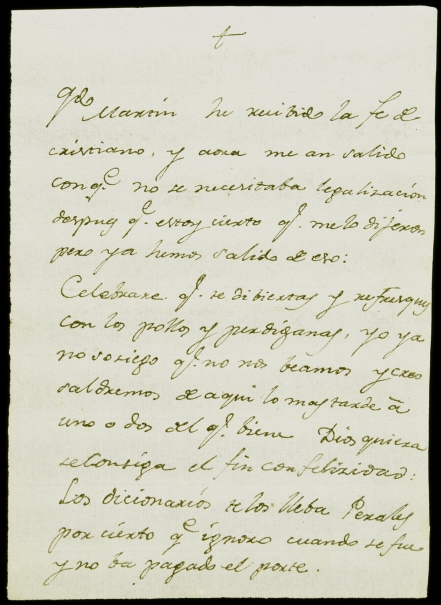 +
Qdo
Martin he recibido la fe de
cristiano, y aora me an salido
con qe no se necesitaba legalizacion
despues qe estoy cierto qe me lo dijeron
pero ya hemos salido de eso:
Celebrare qe te dibiertas y refresques
con los pollos y perdiganas, yo ya
no sosiego qe no nos beamos y creo
saldremos de aqui lo mas tarde à
uno o dos del qe biene Dios quiera
se consiga el fin con felizidad:
Los dicionarios te los lleba Perales
por cierto qe ignoro cuando se fue
y no ba pagado el porte.